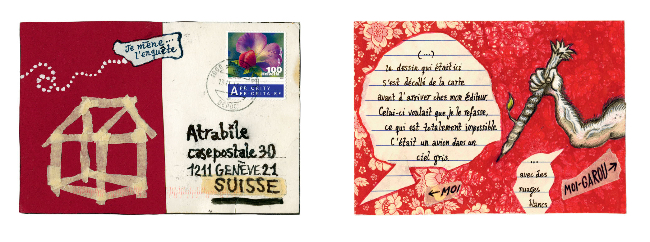 Je mène...
l'enquête
100
A PRIORITY
Atrabile
case postale 30
1211 GENÈVE 21
SUISSE
(....)
le dessin qui était ici
s'est décollé de la carte
avant d'arriver chez mon éditeur.
Celui-ci voulait que je le refasse,
ce qui est totalement impossible.
C'était un avion dans un
ciel gris
...
avec des
nuages
blancs
← MOI
MOI-GAROU →